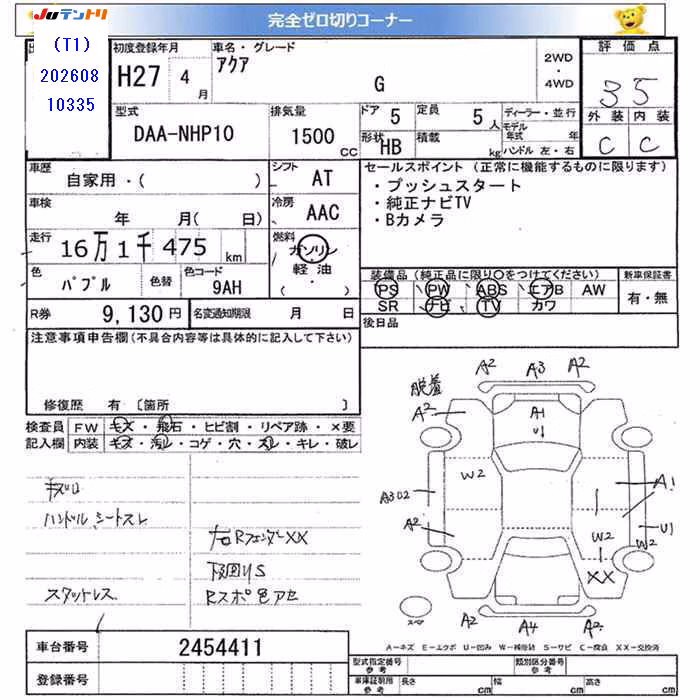 JUテントリ
完全ゼロ切りコーナー
(T1)
202608
10335
初度登録年月
H27 4月
車名・グレード
アクア
G
2WD
・
4WD
評価点
3.5
外装 内装
C C
型式
DAA-NHP10
排気量
1500 CC
ドア 5
定員 5人
形状 HB
積載 kg
ディーラー・並行
モデル年式 年
ハンドル 左・右
車歴
自家用・( )
シフト AT
車検
年 月( 日)
冷房 AAC
走行
16万1千475 km
燃料
ガソリン
軽油
( ・ )
色
パプル
色替
色コード
9AH
R券 9,130円
名変通知期限 月 日
セールスポイント (正常に機能するものに限ります)
・プッシュスタート
・純正ナビTV
・Bカメラ
装備品 (純正品に限り〇をつけてください)
PS PW ABS エアB AW
SR ナビ TV カワ
新車保証書
有・無
後日品
注意事項申告欄(不具合内容等は具体的に記入して下さい)
修復歴 有 〔箇所 〕
検査員記入欄
FW キズ・飛石・ヒビ割・リペア跡・×要
内装 キズ・汚レ・コゲ・穴・スレ・キレ・破レ
ハンドル シートスレ
右RフェンダーXX
下回りS
スタットレス
車台番号 2454411
登録番号
脱着
A2 A3 A2
A2
A1
U1
W2
A3U2
A2
A1
U1
W2
W2
XX
A2 A4 A2
スペア
A-キズ E-エクボ U-凹み W-補修跡 S-サビ C-腐食 XX-交換済
型式指定番号 参考
類別区分番号 参考
車庫証明用 参考
長さ cm
幅 cm
高さ cm